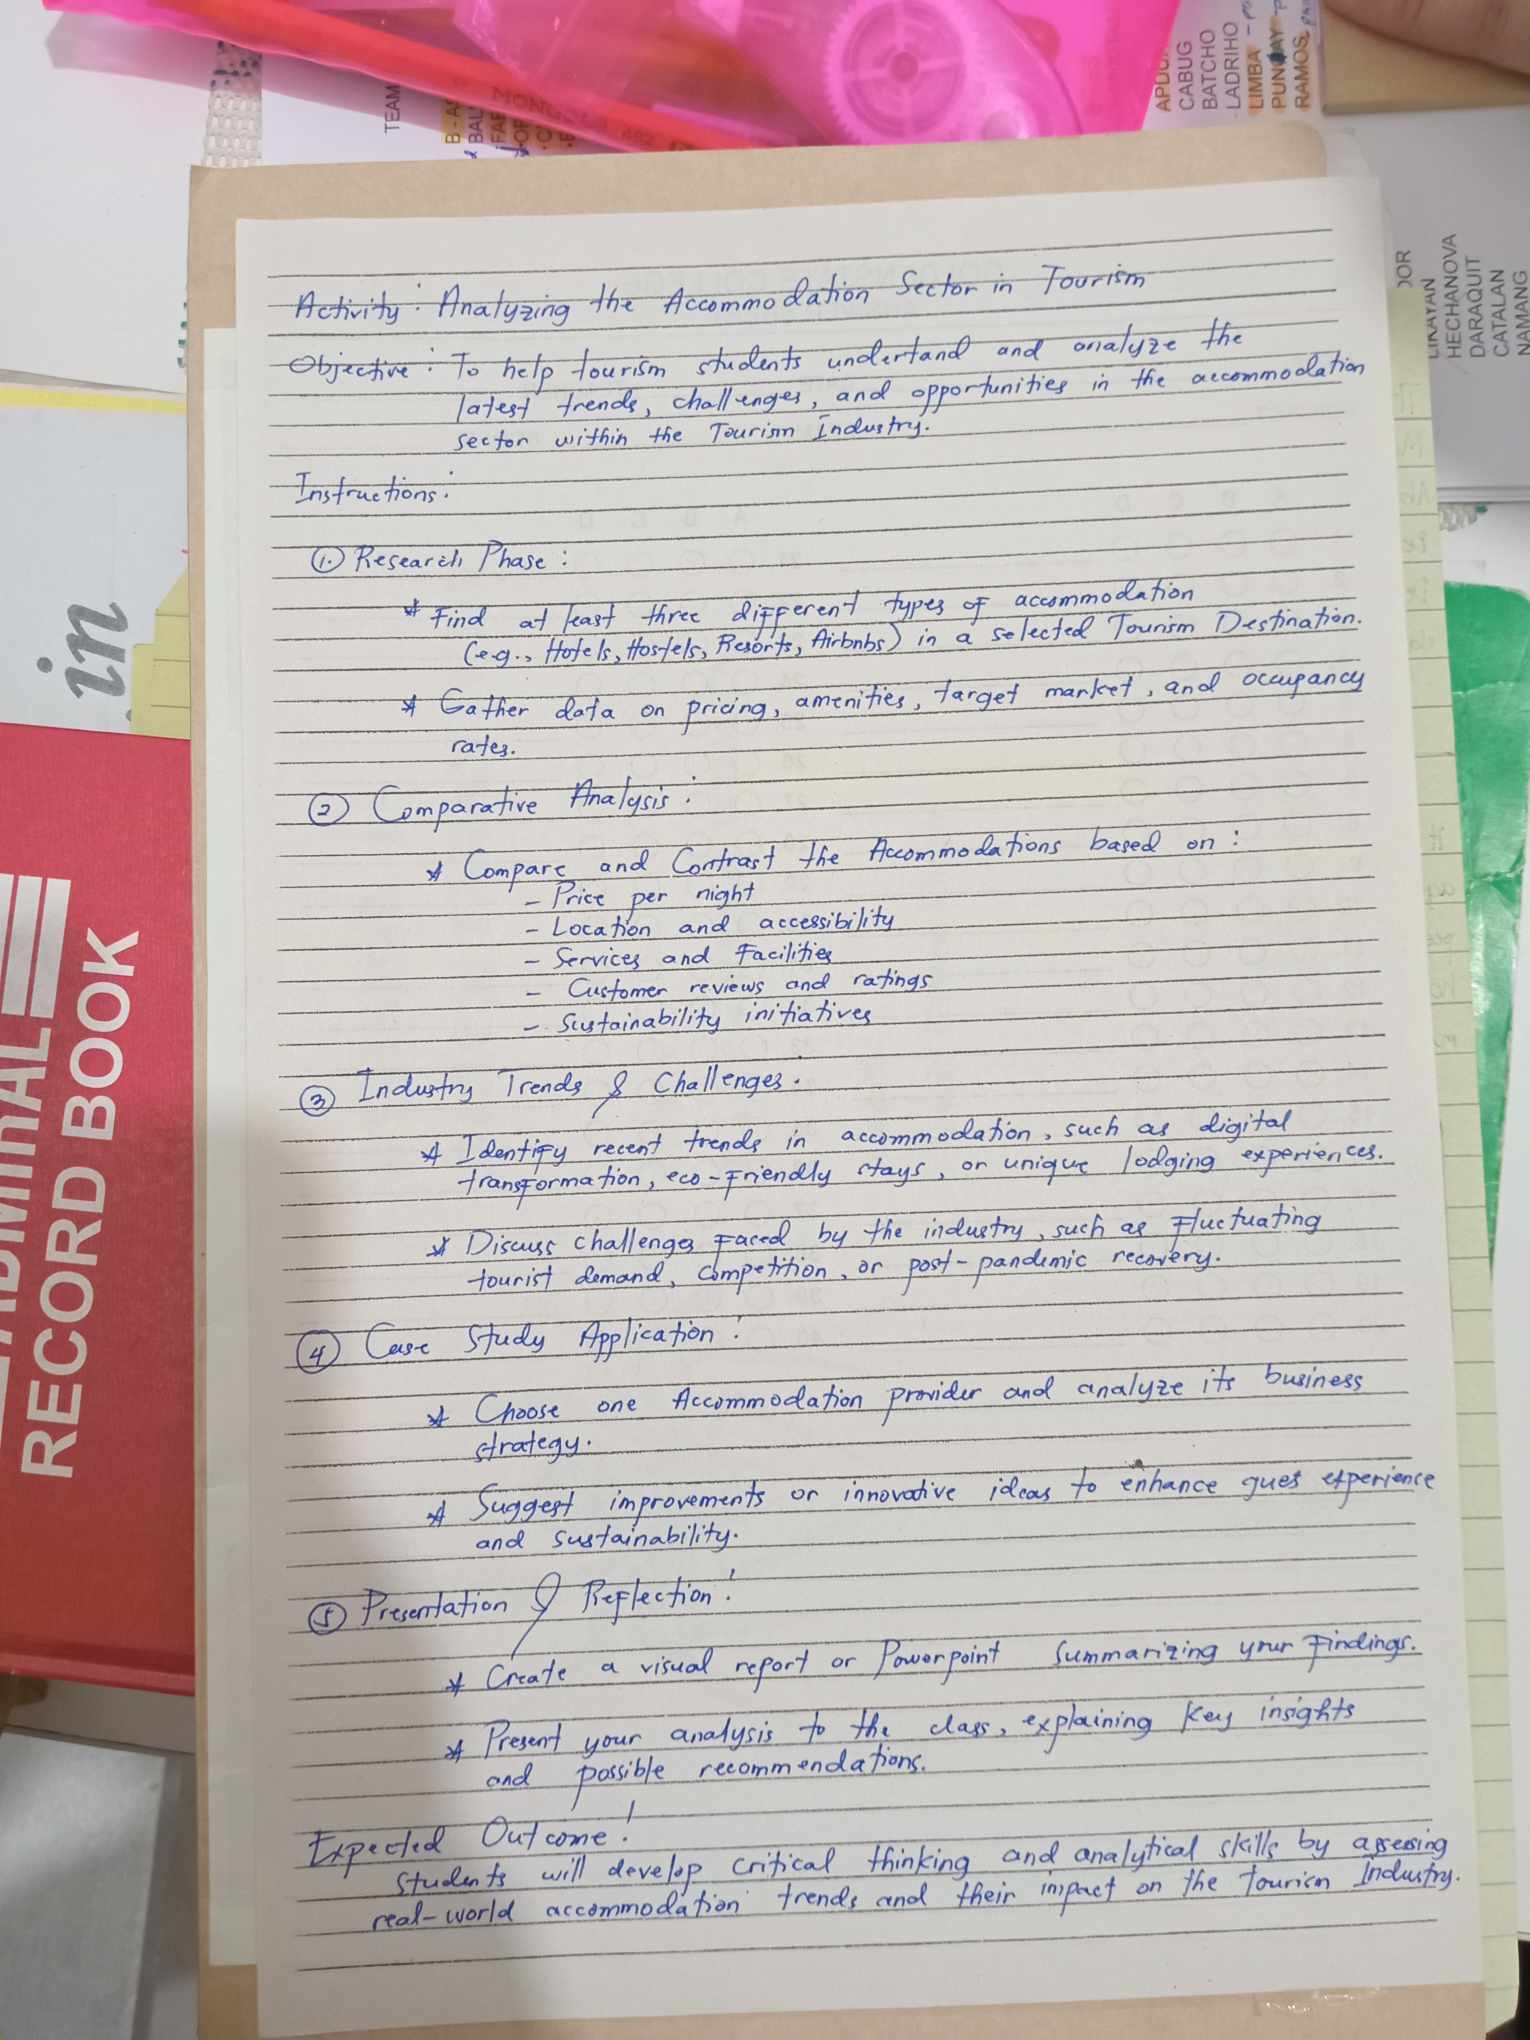 TEAM
APDU
CABUG
BATCHO
LADRIHO
LIMBA
PUNGAY
RAMOS
HECHANOVA
DARAQUIT
CATALAN
NAMANG
in
RECORD BOOK
Activity: Analyzing the Accommodation Sector in Tourism
Objective: To help tourism students undertand and analyze the
latest trends, challenges, and opportunities in the accommodation
sector within the Tourism Industry.
Instructions:
1. Research Phase:
* Find at least three different types of accommodation
(e.g., Hotels, Hostels, Resorts, Airbnbs) in a selected Tourism Destination.
* Gather data on pricing, amenities, target market, and occupancy
rates.
2 Comparative Analysis:
* Compare and Contrast the Accommodations based on:
- Price per night
- Location and accessibility
- Services and Facilities
- Customer reviews and ratings
- Sustainability initiatives
3 Industry Trends & Challenges.
* Identify recent trends in accommodation, such as digital
transformation, eco-friendly stays, or unique lodging experiences.
* Discuss challenges faced by the industry, such as Fluctuating
tourist demand, competition, or post-pandemic recovery.
4 Case Study Application:
* Choose one Accommodation provider and analyze its business
strategy.
* Suggest improvements or innovative ideas to enhance gues experience
and sustainability.
5 Presentation & Reflection:
* Create a visual report or Powerpoint Summarizing your Findings.
* Present your analysis to the class, explaining Key insights
and possible recommendations.
Expected Outcome:
Students will develop critical thinking and analytical skills by assessing
real-world accommodation trends and their impact on the Tourism Industry.